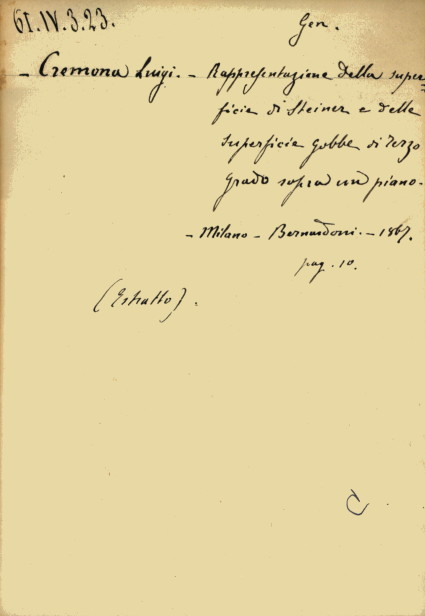 61.IV.3.23.
Gen.
- Cremona Luigi. - Rappresentazione della super=
ficie di Steiner e delle
superficie gobbe di terzo
grado sopra un piano.
- Milano - Bernardoni. - 1867.
pag. 10.
(Estratto).
C